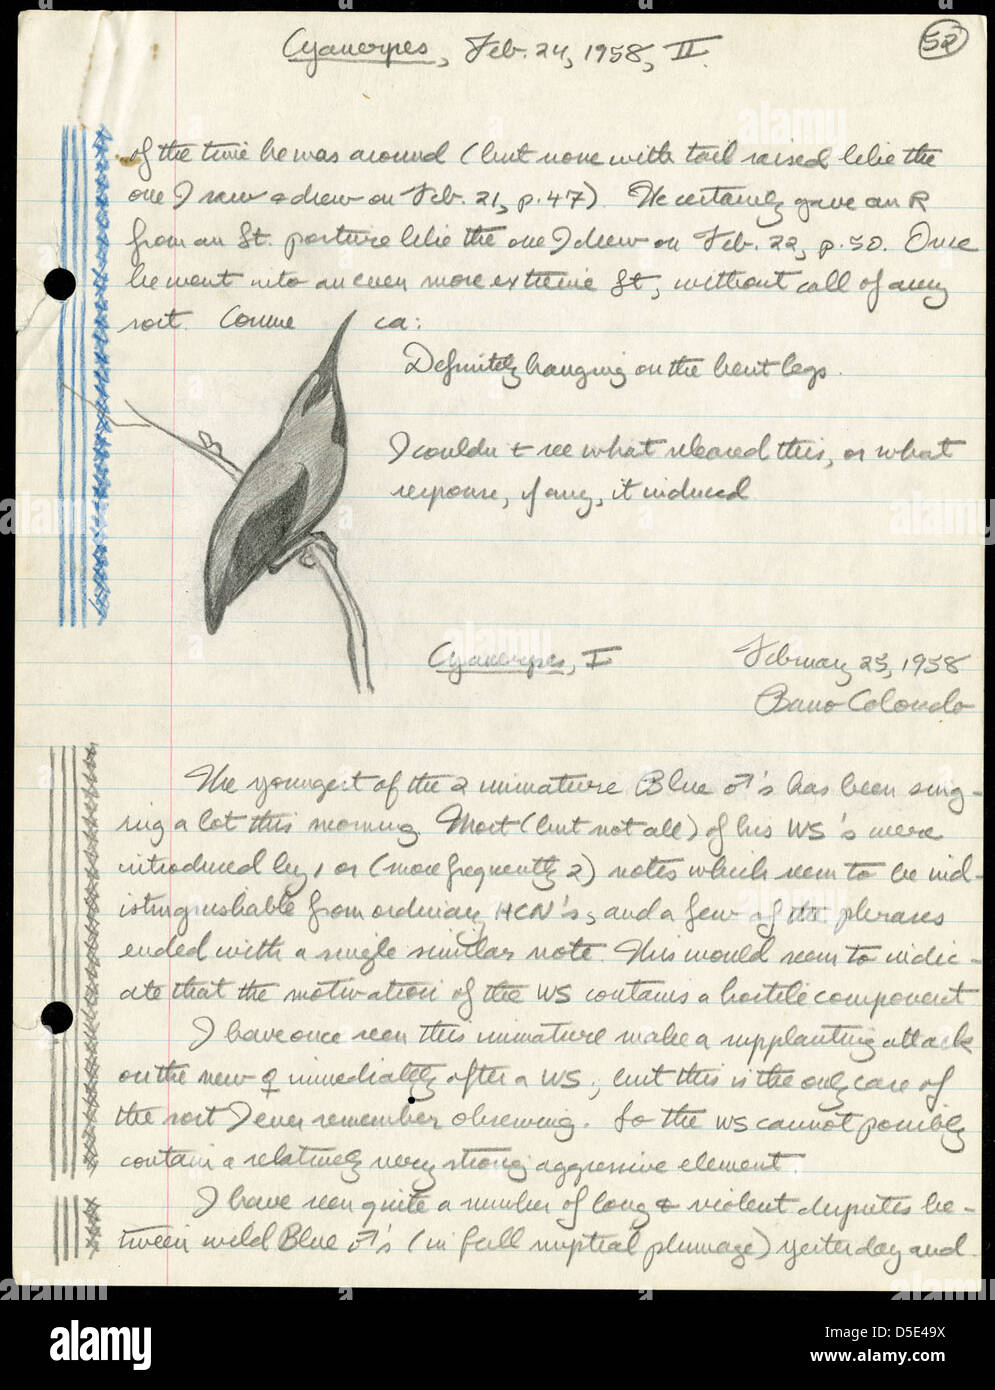 Cyanerpes, Feb. 24, 1958, II.
52
of the time he was around (but none with tail raised like the
one I saw & drew on Feb. 21, p. 47). He certainly gave an R
from an St. posture like the one I drew on Feb. 22, p. 50. Once
he went into an even more extreme St, without call of any
sort. Comme ca:
Definitely hanging on the bent legs.
I couldn't see what released this, or what
response, if any, it induced
Cyanerpes, I February 25, 1958
Barro Colorado
The youngest of the 2 immature Blue ♂'s has been sing-
ing a lot this morning. Most (but not all) of his WS's were
introduced by 1 or (more frequently 2) notes which seem to be ind-
istinguishable from ordinary HCN's, and a few of the phrases
ended with a single similar note. This would seem to indic-
ate that the motivation of the WS contains a hostile component
I have once seen this immature make a supplanting attack
on the new ♀ immediately after a WS, but this is the only case of
the sort I ever remember observing. So the WS cannot possibly
contain a relatively very strong aggressive element.
I have seen quite a number of long & violent disputes be-
tween wild Blue ♂'s (in full nuptial plumage) yesterday and
alamy
Image ID: D5E49X
www.alamy.com